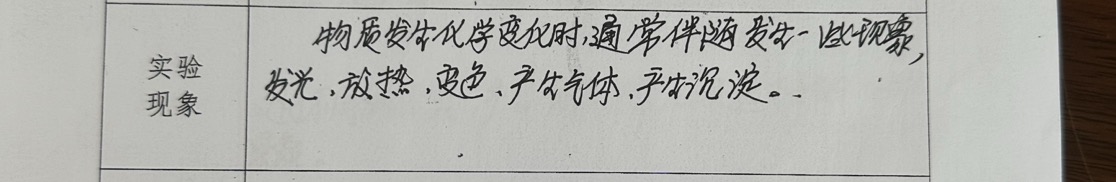 实验
现象
物质发生化学变化时,通常伴随发生一些现象,
发光、放热、变色、产生气体、产生沉淀。